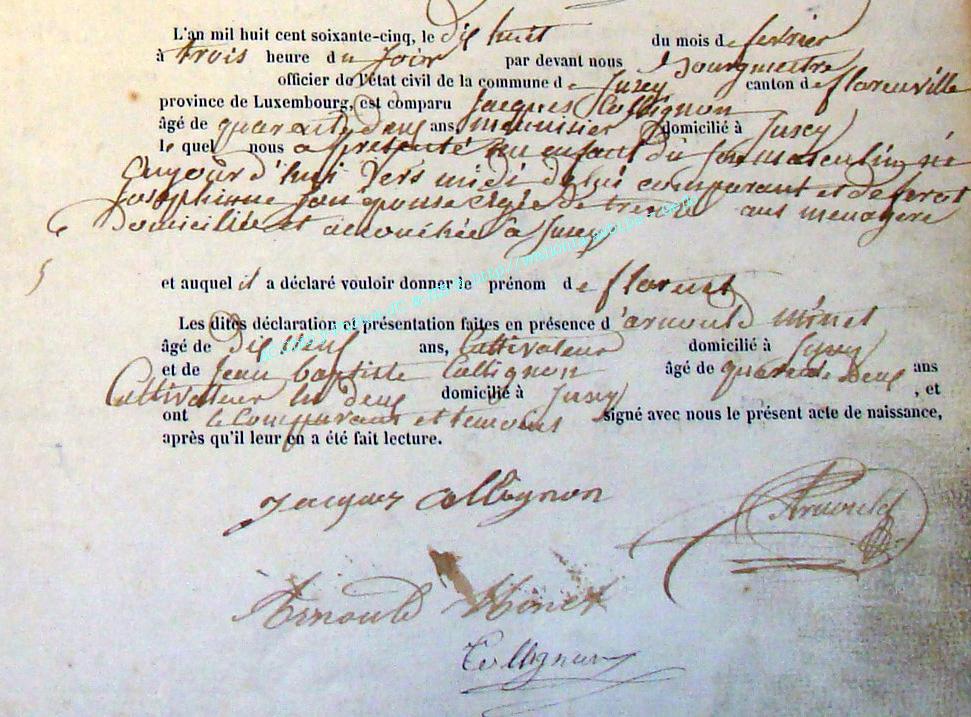 L'an mil huit cent soixante-cinq, le dix huit du mois de fevrier
à trois heure du soir par devant nous Bourgmestre
officier de l'état civil de la commune de Jusey canton de florenville
province de Luxembourg, est comparu Jacques Collignon
âgé de quarante deux ans, meunisier domicilié à Jusey
le quel nous a presenté un enfant du sex masculin né
aujourd'hui vers midi de lui comparant et de
Josephinne son epouse agée de trente ans menagere
Domiciliée et accouchée à Jusey
et auquel il a déclaré vouloir donner le prénom de florent
Les dites déclaration et présentation faites en présence d'arnould minet
âgé de dix neuf ans, Cultivateur domicilié à Jusey
et de Jean baptiste Collignon âgé de quarante deux ans
Cultivateur les deux domicilié à Jusey , et
ont le Comparant et temoins signé avec nous le présent acte de naissance,
après qu'il leur en a été fait lecture.
Jacques Collignon
Arnould
Arnould Minet
Collignon